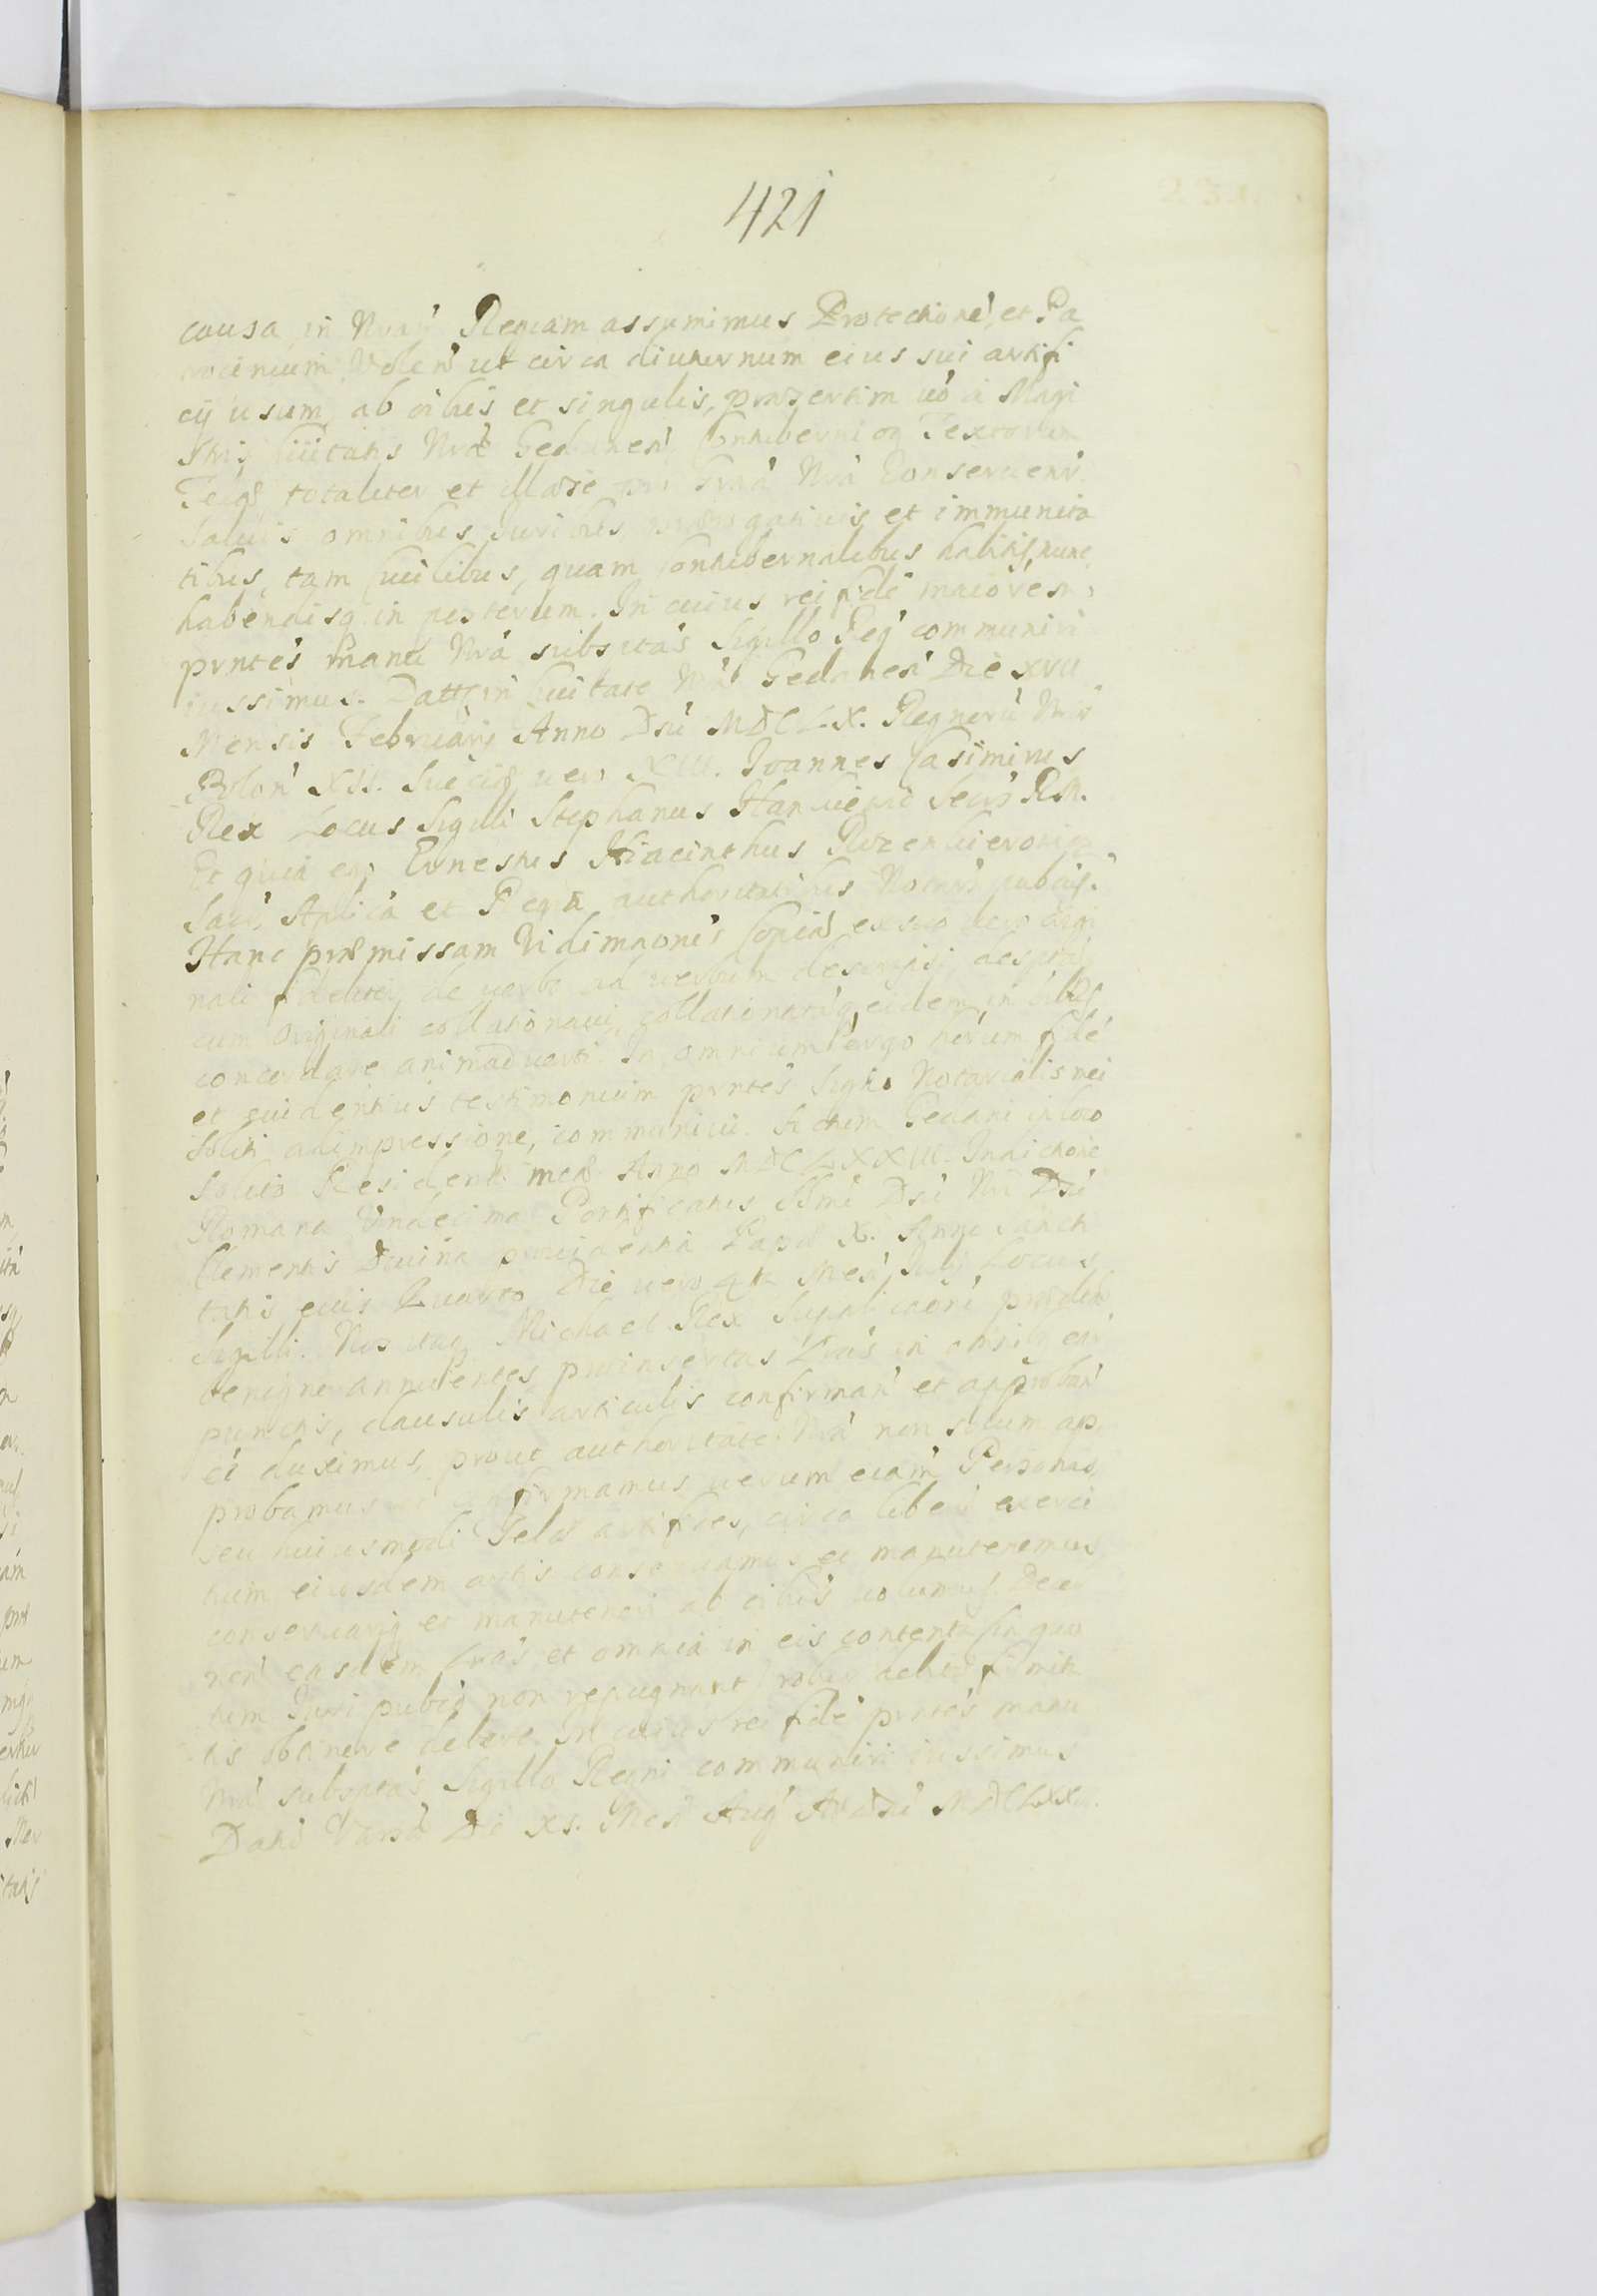 421
causa in Nram Regiam assumimus Protectione, et Pa
trocinium. Volen ut circa diuturnum eius sui artifi
cij usum, ab oibus et singulis, præsertim uo a Magi
stris Ciuitatis Nræ Gedanen Contubernioq Textorum
totaliter et illæse Nra Conseruent.
Saluis omnibus iuribus prærogatiuis et immunita
tibus, tam Ciuilibus, quam Contubernalibus habitis, nunc
habendisq in posterum. In cuius rei fide maiorem
prntes manu Nra subscrtas Sigillo Reg communiri
iussimus. Datt in Ciuitate Nra Gedanen Die XVII
Mensis February Anno Dni MDCLX. Regnoru Nror
Polon XII. Sueciæ uero XIII. Ioannes Casimirus
Rex Locus Sigilli Stephanus Secrs RM.
Et quia ego Ernestus Hiacinthus
Sacra Aplica et Regia authoritatibus Notars publicus
Hanc præmissam Vidimaonis Copia ex suo uero Origi
nali fideliter de uerbo ad uerbum descripsi, descripta
cum Originali collationaui, collationataq eidem in oibus
concordare animaduerti. In omnium ergo horum fide
et euidentius testimonium prntes Signo Notarialis mei
soliti adimpressione, communiui. Actum Gedani in loco
solito Residenti meæ Anno MDCLXXIII. Indictione
Romana Vndecima Pontificatus SSmi Dni Nri Dni
Clementis Diuina prouidentia Papæ X. Anno
eius Quarto Die uero 4ta Mens July Locus
Sigilli. Nos itaq Michael Rex Supplicaoni prædictæ
benigne annuentes, præinsertas Lras in oibus ear
punctis, clausulis articulis confirman et approban
ee duximus, prout authoritate Nra non solum ap
probamus et confirmamus uerum etiam Personas,
seu huiusmodi Telæ artifices, circa liberu exerci
tium eiusdem artis conseruamus et manutenemus
conseruariq et manuteneri ab oibus uolumus. Decer
nen easdem Lras et omnia in eis contenta (in quan
tum Iuri publico non repugnant) robur debitæ firmita
tis obtinere debere. In cuius rei fide prntes manu
Nra subscrtas Sigillo Regni communiri iussimus
Datt Varsa Die XI. Mens Aug